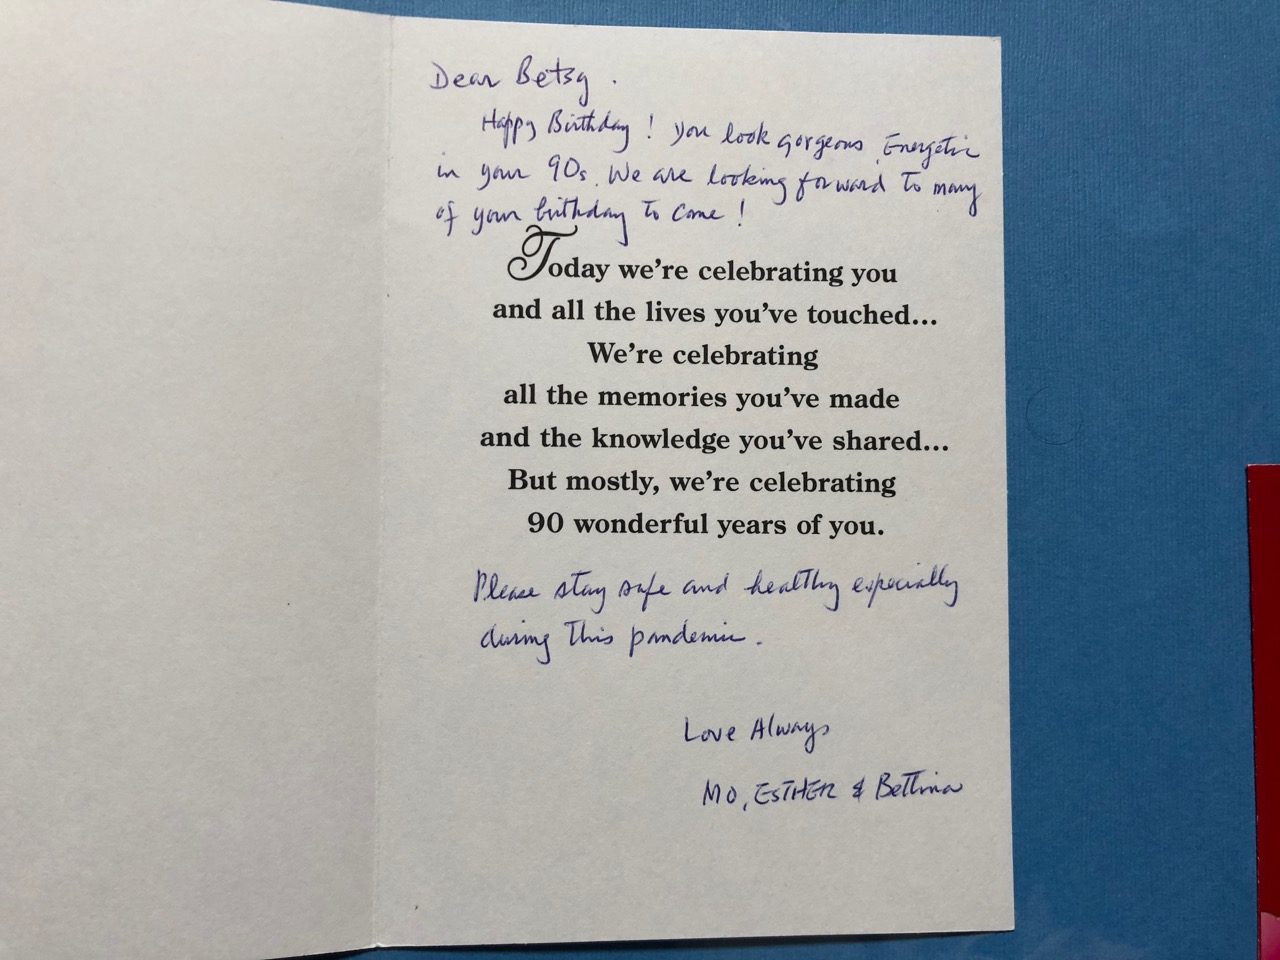 Dear Betsy.
Happy Birthday! You look gorgeous, Energetic
in your 90s. We are looking forward to many
of your birthday to come!
Today we're celebrating you
and all the lives you've touched...
We're celebrating
all the memories you've made
and the knowledge you've shared...
But mostly, we're celebrating
90 wonderful years of you.
Please stay safe and healthy especially
during this pandemic.
Love Always
MO, ESTHER & Bettina